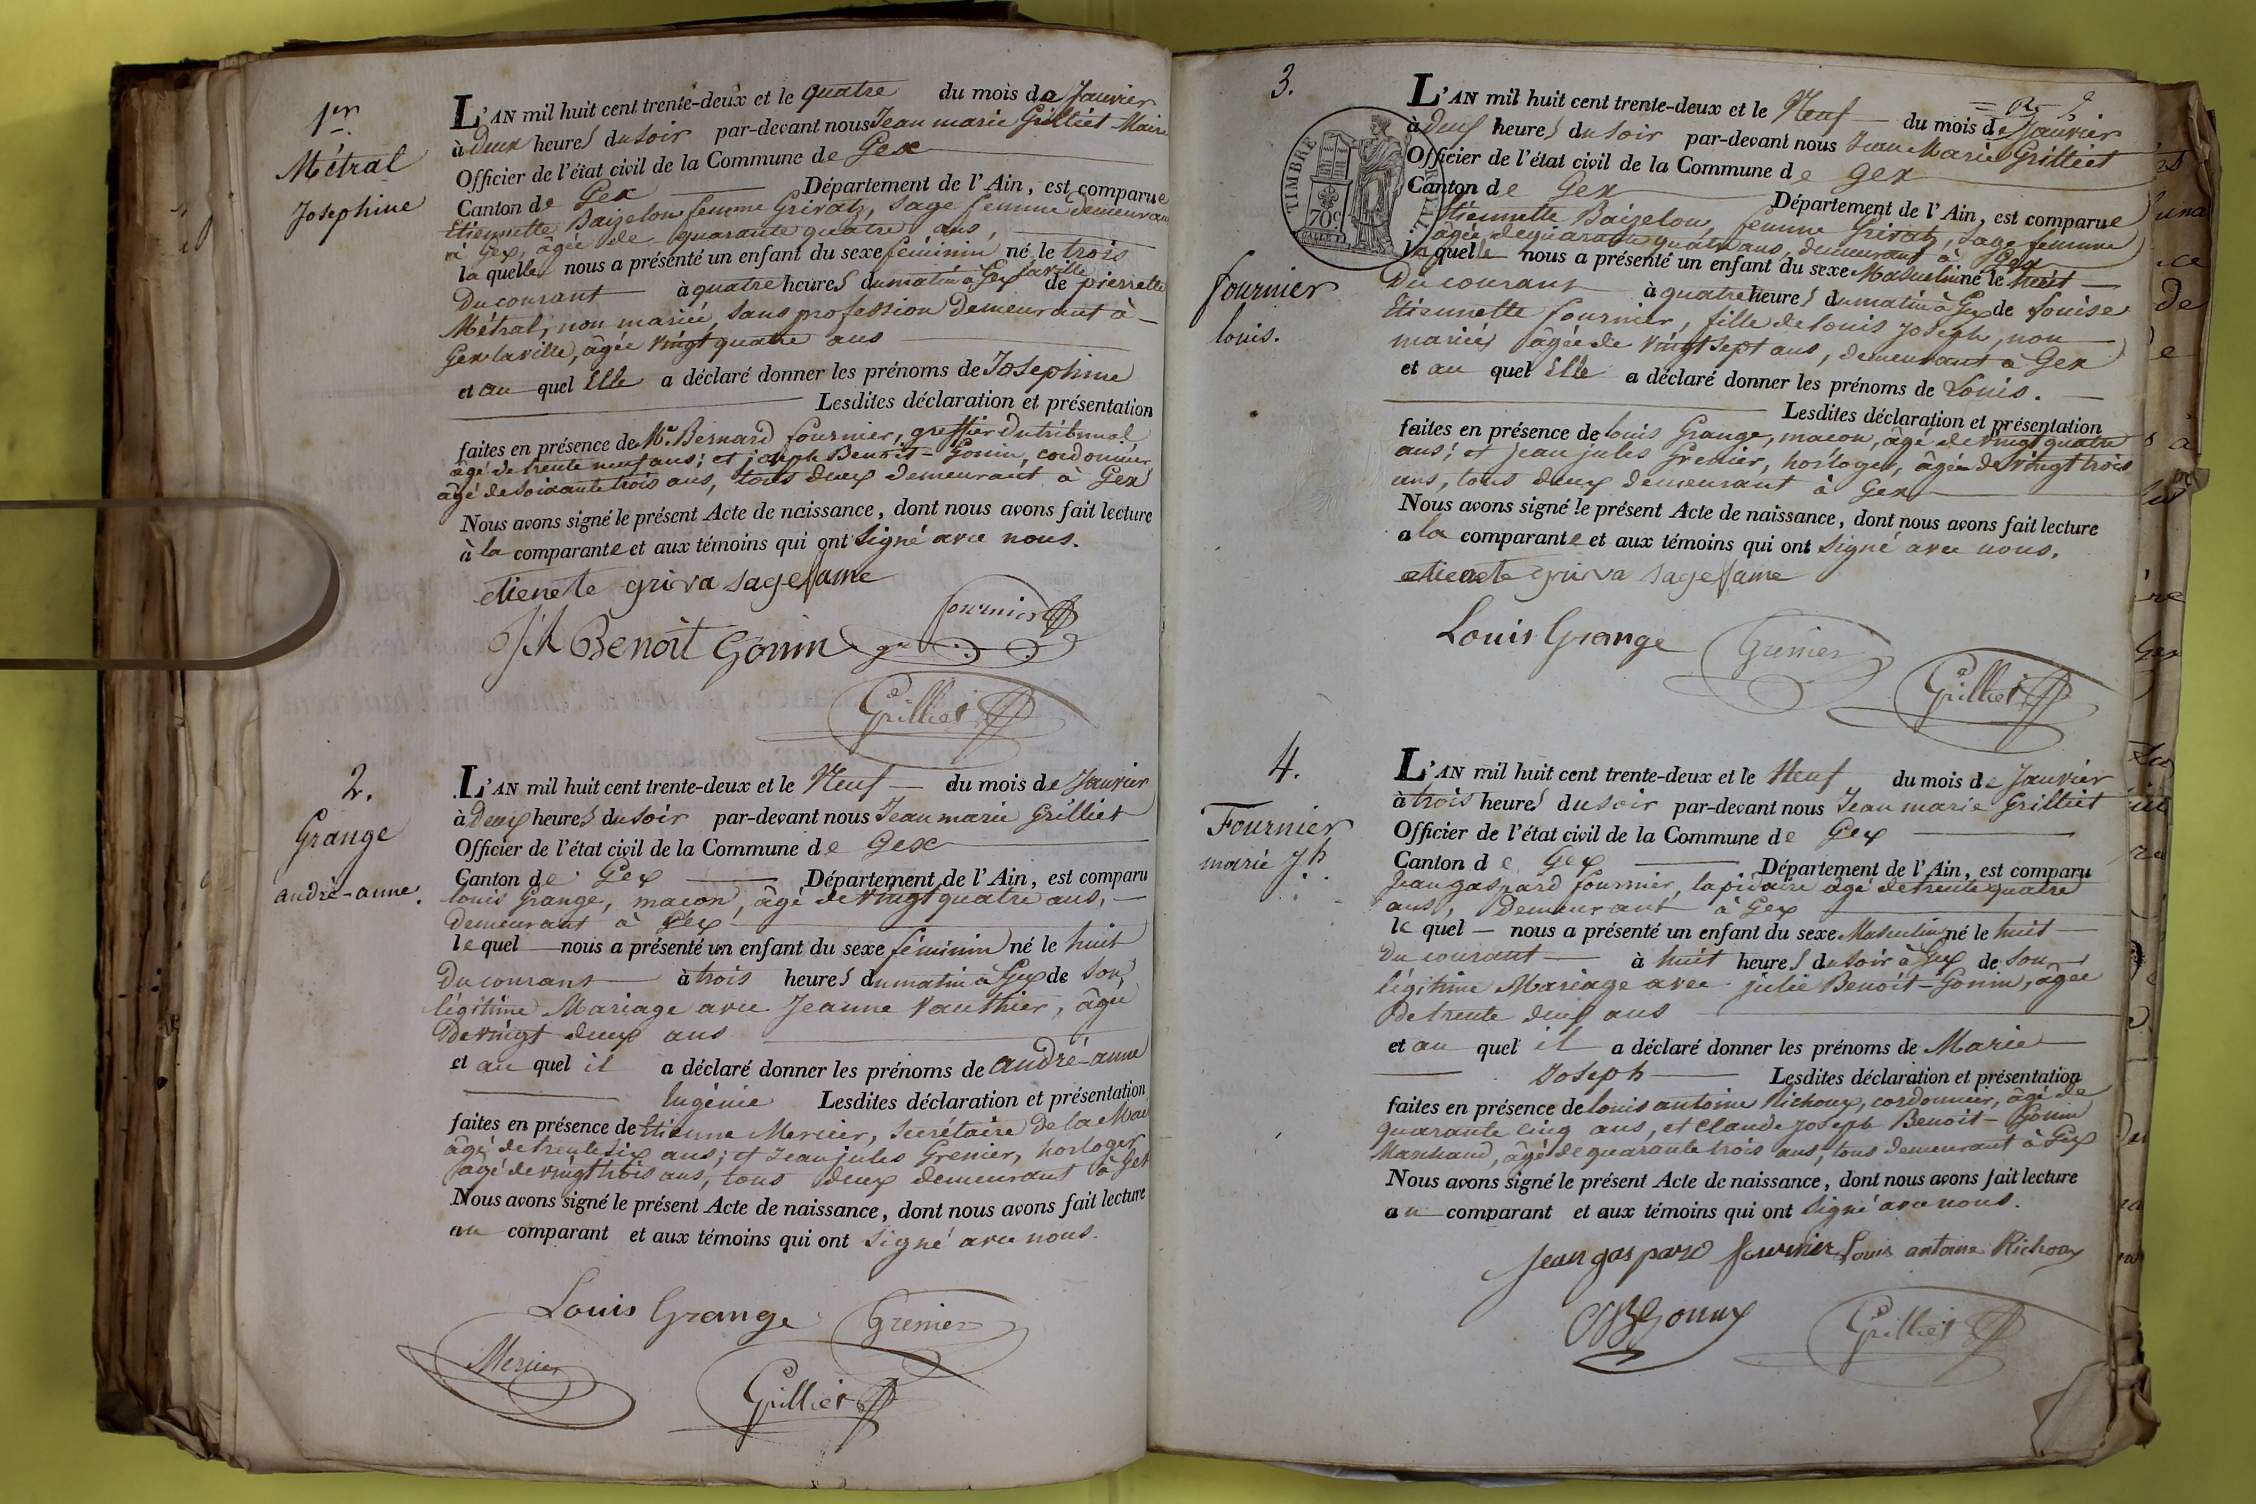 1er
Métral
Josephine
L'AN mil huit cent trente-deux et le quatre du mois de Janvier
à Deux heures du soir par-devant nous Jean marie Grilliet Maire
Officier de l'état civil de la Commune de Gex
Canton de Gex Département de l'Ain, est comparue
Etiennette Baizelon femme Grivatz, sage femme demeurant
à Gex, âgée de quarante quatre ans,
la quelle nous a présenté un enfant du sexe féminin né le trois
Du courant à quatre heures du matin à Gex laville de pierrette
Métral, non mariée, sans profession Demeurant à
Gex laville, âgée vingt quatre ans
et au quel Elle a déclaré donner les prénoms de Josephine
Lesdites déclaration et présentation
faites en présence de Me. Bernard fournier, greffier du tribunal
âgé de trente neuf ans; et joseph Benoit-Gonin, cordonnier
âgé de soixante trois ans, tous deux demeurant à Gex
Nous avons signé le présent Acte de naissance, dont nous avons fait lecture
à la comparante et aux témoins qui ont signé avec nous.
etienete griva sagefame
fournier
Jh Benoit Gonin
Grilliet
2.
Grange
andré-anne.
L'AN mil huit cent trente-deux et le Neuf du mois de Janvier
à Deux heures du soir par-devant nous Jean marie Grilliet
Officier de l'état civil de la Commune de Gex
Canton de Gex Département de l'Ain, est comparu
louis Grange, macon, âgé de vingt quatre ans,
demeurant à Gex
le quel nous a présenté un enfant du sexe féminin né le huit
Du courant à trois heures du matin à Gex de Son
légitime Mariage avec Jeanne Vauthier, âgée
De vingt deux ans
et au quel il a déclaré donner les prénoms de andré-anne
Eugénie Lesdites déclaration et présentation
faites en présence de Etienne Mercier, Secrétaire de la Mai
âgé de trente six ans; et Jean jules Grenier, horloger
âgé de vingt trois ans, tous deux demeurant à Gex
Nous avons signé le présent Acte de naissance, dont nous avons fait lecture
au comparant et aux témoins qui ont signé avec nous.
Louis Grange Grenier
Mercier
Grilliet
3.
TIMBRE ROYAL
70c
fournier
louis.
L'AN mil huit cent trente-deux et le Neuf du mois de Janvier
à Deux heures du soir par-devant nous Jean Marie Grilliet
Officier de l'état civil de la Commune de Gex
Canton de Gex Département de l'Ain, est comparue
Etiennette Baizelon, femme Grivatz, sage femme
âgée de quarante quatre ans, demeurant à Gex
la quelle nous a présenté un enfant du sexe Masculin né le huit
Du courant à quatre heures du matin à Gex de Louise
Etiennette fournier, fille de louis Joseph, non
mariée, âgée de vingt sept ans, demeurant à Gex
et au quel Elle a déclaré donner les prénoms de Louis.
Lesdites déclaration et présentation
faites en présence de louis Grange, macon, âgé de vingt quatre
ans; et jean jules Grenier, horloger, âgé de vingt trois
ans, tous deux demeurant à Gex
Nous avons signé le présent Acte de naissance, dont nous avons fait lecture
a la comparante et aux témoins qui ont signé avec nous.
etienete griva sagefame
Louis Grange Grenier
Grilliet
4.
Fournier
marie Jh.
L'AN mil huit cent trente-deux et le Neuf du mois de Janvier
à trois heures du soir par-devant nous Jean marie Grilliet
Officier de l'état civil de la Commune de Gex
Canton de Gex Département de l'Ain, est comparu
Jean gaspard fournier, lapidaire âgé de trente quatre
ans, Demeurant à Gex
le quel nous a présenté un enfant du sexe Masculin né le huit
Du courant à huit heures du soir à Gex de son
légitime Mariage avec julie Benoit-Gonin, âgée
De trente deux ans
et au quel il a déclaré donner les prénoms de Marie
Joseph Lesdites déclaration et présentation
faites en présence de louis antoine Richoux, cordonnier, âgé de
quarante cinq ans, et Claude joseph Benoit-Gonin
Marchand, âgé de quarante trois ans, tous demeurant à Gex
Nous avons signé le présent Acte de naissance, dont nous avons fait lecture
au comparant et aux témoins qui ont signé avec nous.
jean gaspard fournier Louis antoine Richoux
Grilliet